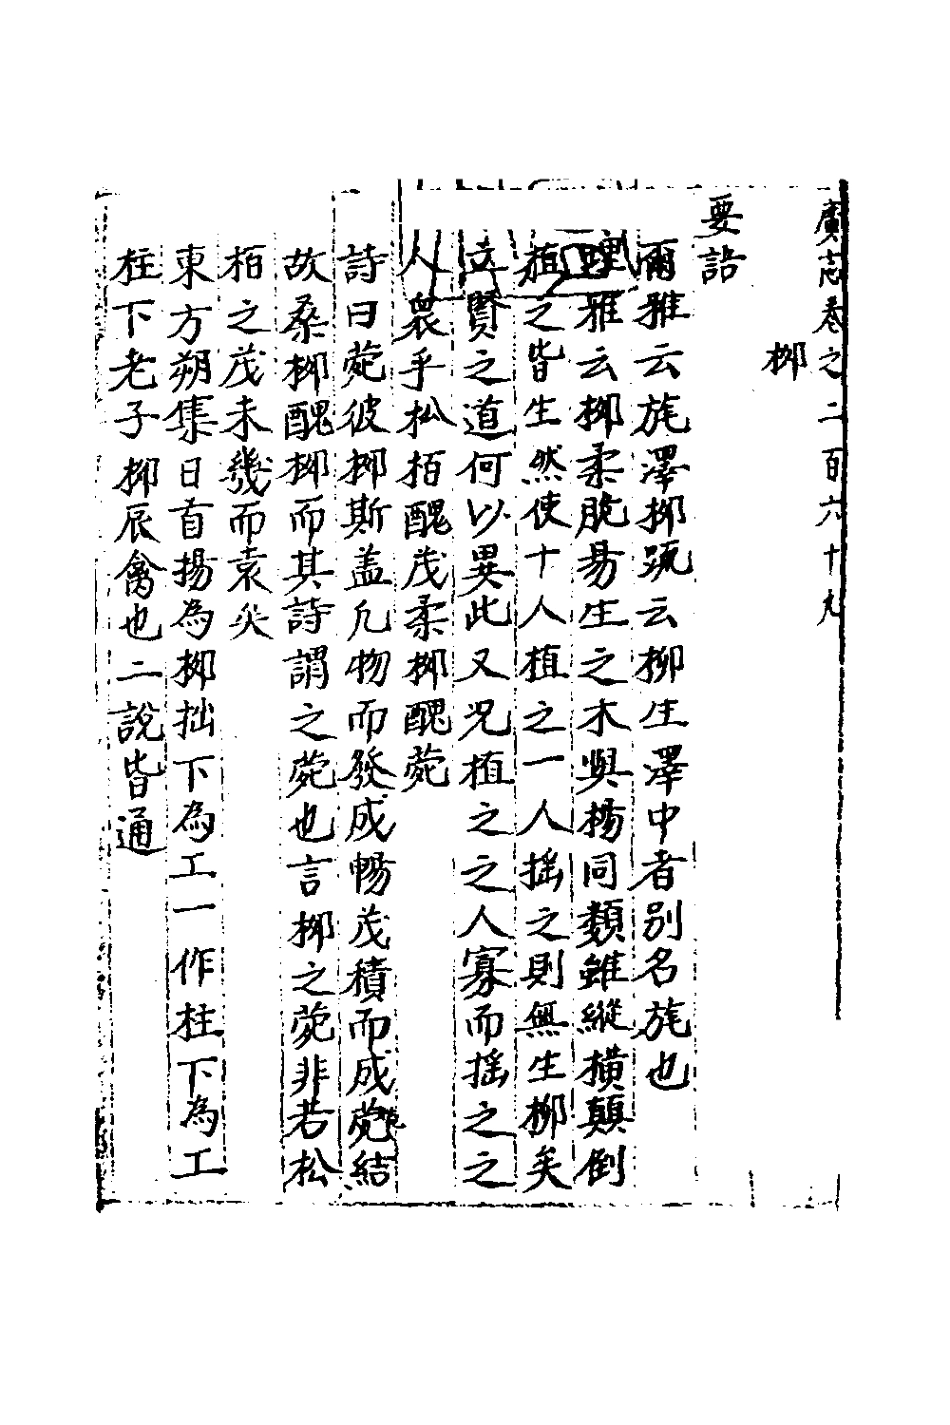 廣志卷之二百六十九
柳
要詰
爾雅云旄澤柳䟽云柳生澤中者别名旄也
埤雅云柳柔脆易生之木與楊同類雖縱横顛倒
植之皆生然使十人植之一人揺之則無生柳矣
立賢之道何以異此又况植之之人寡而揺之之
人衆乎松栢醜茂柔柳醜菀
詩曰菀彼柳斯盖凡物而發成暢茂積而成菀結
故桑柳醜柳而其詩謂之菀也言柳之菀非若松
栢之茂未幾而衰矣
東方朔集曰首揚為柳拙下為工一作柱下為工
柱下老子柳辰禽也二說皆通